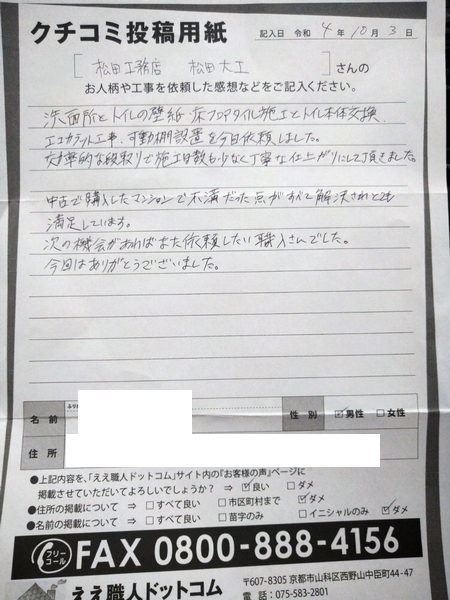 クチコミ投稿用紙
記入日 令和 4 年 10 月 3 日
[ 松田工務店 松田大工 ] さんの
お人柄や工事を依頼した感想などをご記入ください。
洗面所とトイレの壁紙・床フロアタイル施工とトイレ本体交換、
エコカラット工事、可動棚設置を今回依頼しました。
効率的な段取りで施工日数も少なく丁寧な仕上がりにして頂きました。
中古で購入したマンションで不満だった点がすべて解決されとても
満足しています。
次の機会があればまた依頼したい職人さんでした。
今回はありがとうございました。
名前 ふり 性別 ☑男性 □女性
住所
●上記内容を、「ええ職人ドットコム」サイト内の『お客様の声』ページに
掲載させていただいてよろしいでしょうか? ⇒ ☑良い □ダメ
●住所の掲載について ⇒ □すべて良い □市区町村まで ☑ダメ
●名前の掲載について ⇒ □すべて良い □苗字のみ □イニシャルのみ ☑ダメ
フリーコール FAX 0800-888-4156
ええ職人ドットコム
〒607-8305 京都市山科区西野山中臣町44-47
電話番号: 075-583-2801